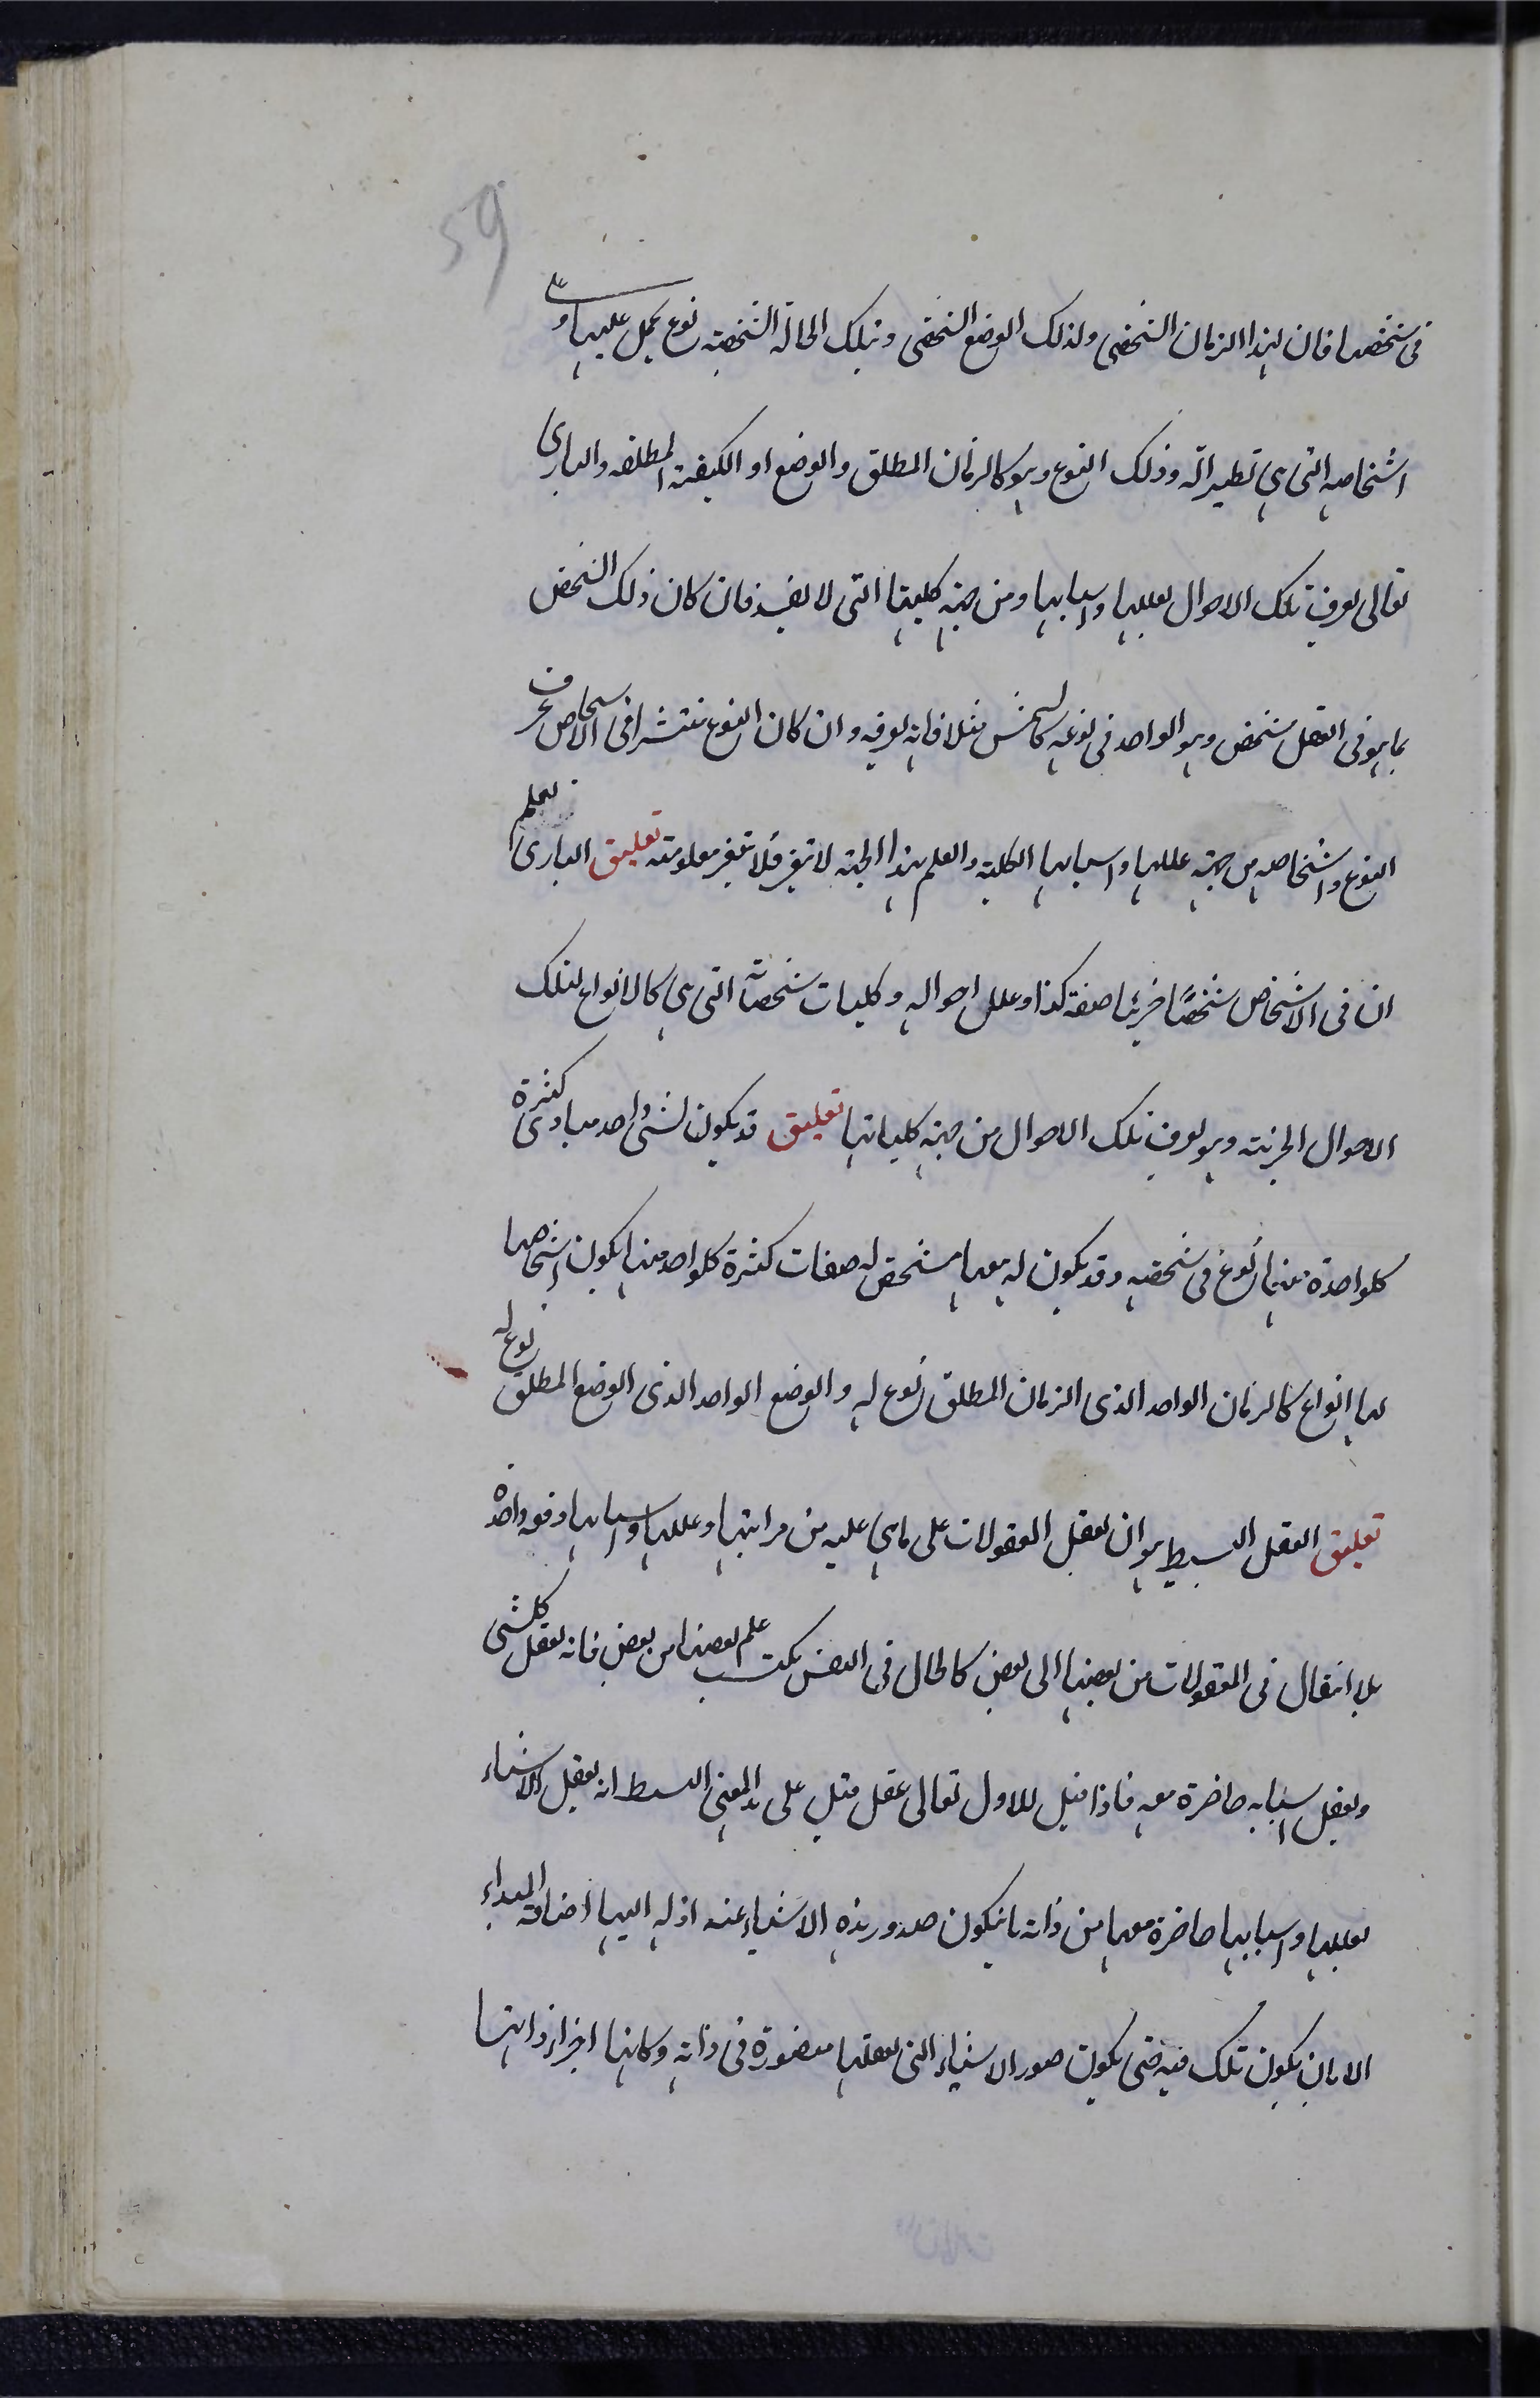 59
فى شخصها فان لهذا الزمان الشخصى ولذلك الوضع الشخصى وتلك الحالة الشخصية نوع يحمل عليها و على
اشخاصه التى هى نظيراته وذلك النوع وهو كالزمان المطلق والوضع او الكيفية المطلقه والبارى
تعالى يعرف تلك الاحوال بعللها واسبابها ومن جهة كليتها التى لا يفسد فان كان ذلك الشخص
بما هو فى العقل شخص وهو الواحد فى نوعه كالشمس مثلا فانه يعرفه وان كان النوع منتشرا فى الاشخاص عرف
النوع واشخاصه من جهة عللها واسبابها الكلية والعلم بهذا الجهة لا تتغير فلا تتغير معلومته تعليق البارى يعلم
ان فى الاشخاص شخصًا جزئيا صفته كذا وعلل احواله وكليات شخصاته التى هى كالانواع لتلك
الاحوال الجزئية وهو يعرف تلك الاحوال من جهة كلياتها تعليق قد يكون لشئ واحد مبادى كثيرة
كلواحدة منها نوع فى شخصيه وقد يكون له معها مشخص له صفات كثيرة كلواحد منها يكون اشخاصها
لها انواع كالزمان الواحد الذى الزمان المطلق نوع له والوضع الواحد الذى الوضع المطلق نوع له
تعليق العقل البسيط هو ان يعقل المعقولات على ما هى عليه من مراتبها وعللها واسبابها دفعه واحدة
بلا انتقال فى المعقولات من بعضها الى بعض كالحال فى النفس يكتسب علم بعضها من بعض فانه يعقل كلشى
ويعقل اسبابه حاضرة معه فاذا قيل للاول تعالى عقل قيل على هذا المعنى البسيط انه يعقل الاشياء
بعللها واسبابها حاضرة معها من ذاته بانيكون صدور هذه الاشياء عنه اذ له اليها اضافة المبداء
الا بان يكون تلك فيه حتى يكون صور الاشياء التى يعقلها متصورة فى ذاته وكانها اجزاء ذاتها